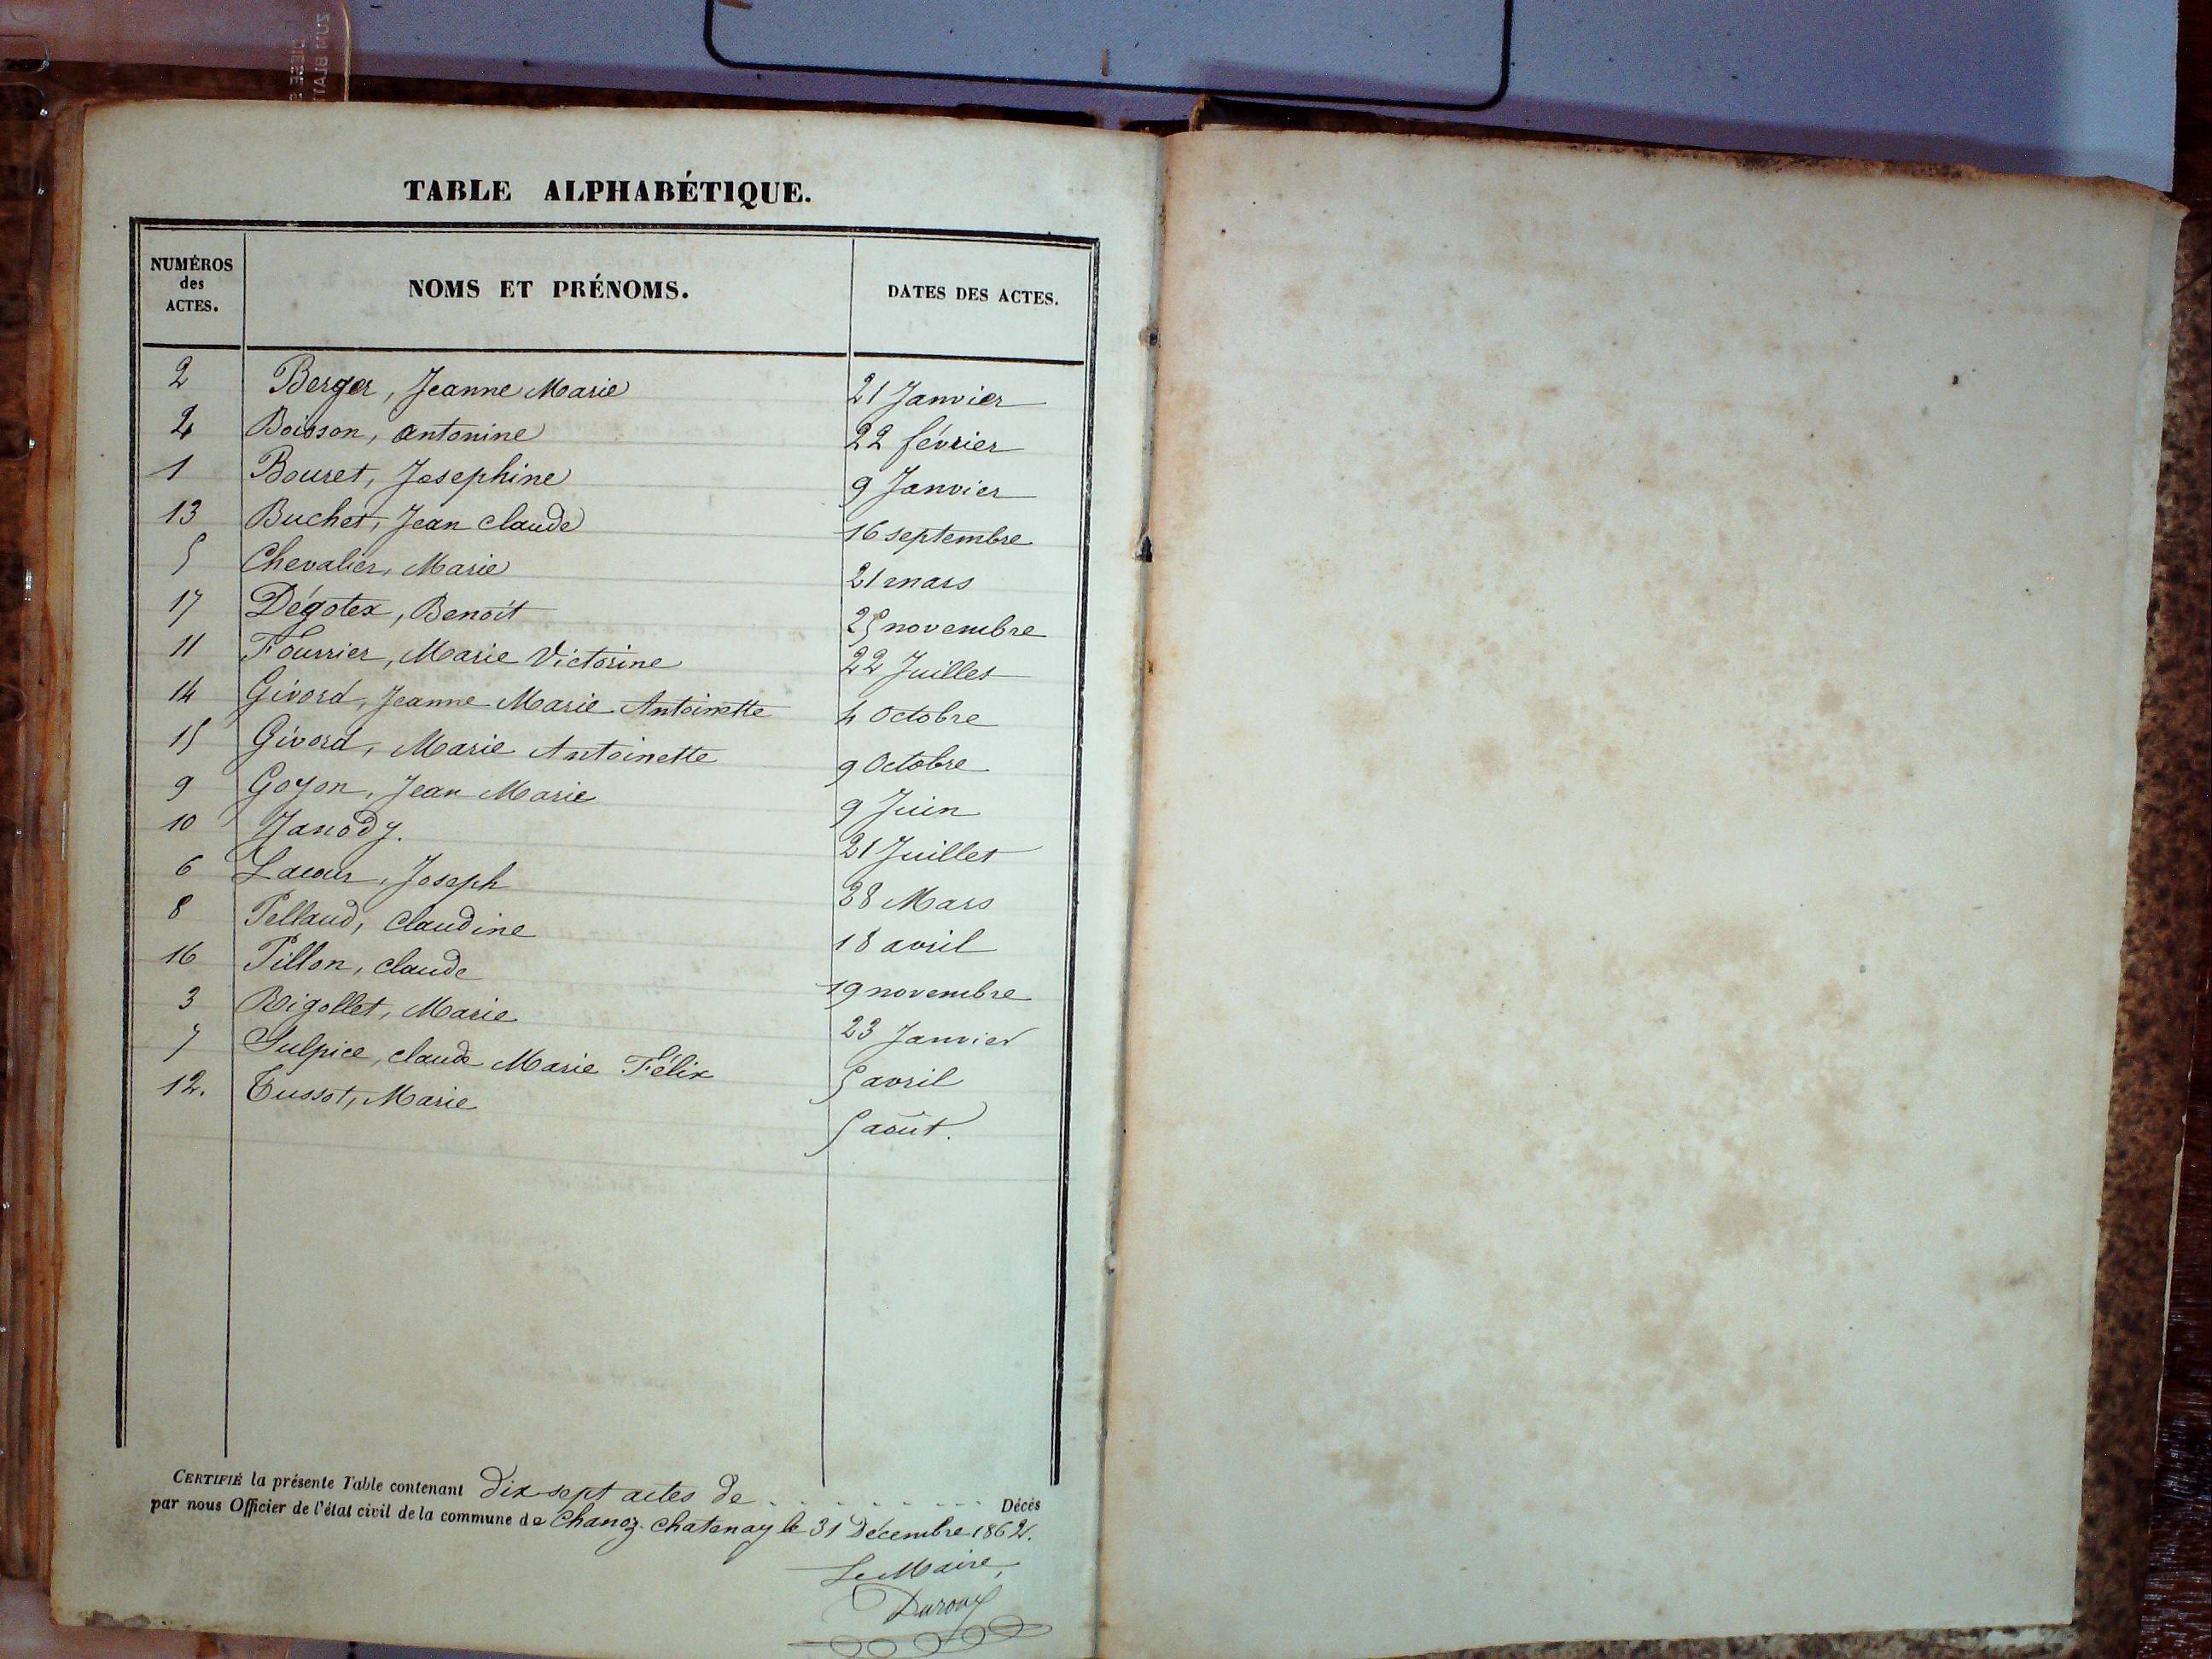 TABLE ALPHABÉTIQUE.
NUMÉROS des ACTES. NOMS ET PRÉNOMS. DATES DES ACTES.
2 Berger, Jeanne Marie 21 Janvier
4 Boisson, Antonine 22 février
1 Bouret, Josephine 9 Janvier
13 Buchet, Jean Claude 16 septembre
5 Chevalier, Marie 21 mars
17 Dégotex, Benoit 25 novembre
11 Fourrier, Marie Victorine 22 Juillet
14 Givord, Jeanne Marie Antoinette 4 Octobre
15 Givord, Marie Antoinette 9 Octobre
9 Goyon, Jean Marie 9 Juin
10 Janody. 21 Juillet
6 Lacour, Joseph 28 Mars
8 Pelland, Claudine 18 avril
16 Pillon, Claude 19 novembre
3 Rigollet, Marie 23 Janvier
7 Sulpice, claude Marie Félix 5 avril
12. Tussot, Marie 5 août.
CERTIFIÉ la présente Table contenant dix-sept actes de Décès
par nous Officier de l'état civil de la commune de Chanoz-chatenay le 31 Décembre 1862.
Le Maire,
Duroux